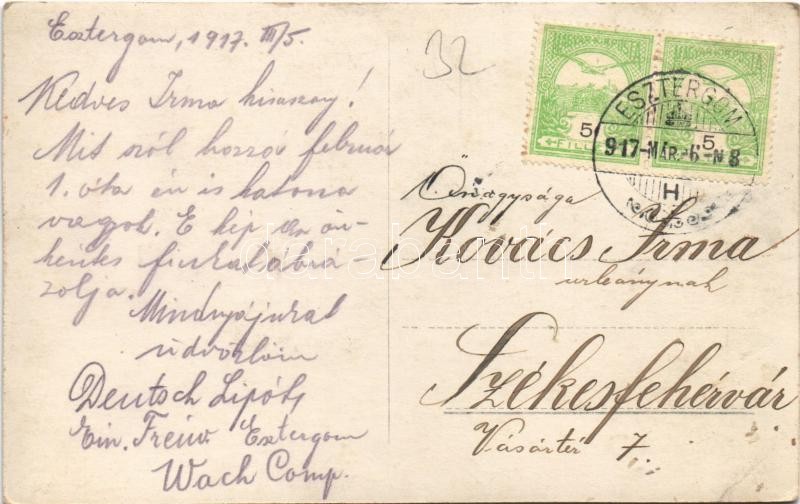 Esztergom, 1917. III/5.
Kedves Irma kisasszony!
Mit szól hozzá február
1. óta én is katona
vagok. E kép az ön-
kéntes fiukat ábrá-
zolja.
Mindnyájukat
üdvözlöm
Deutsch Lipót
Ein. Freiw. Esztergom
Wach Comp.
32
MAGYAR KIR. POSTA
5
FILLÉR
MAGYAR KIR. POSTA
5
ESZTERGOM
917-MÁR.-6-N8
H
Őnagysága
Kovács Irma
urleánynak
Székesfehérvár
Vásártér 7.
darabanth